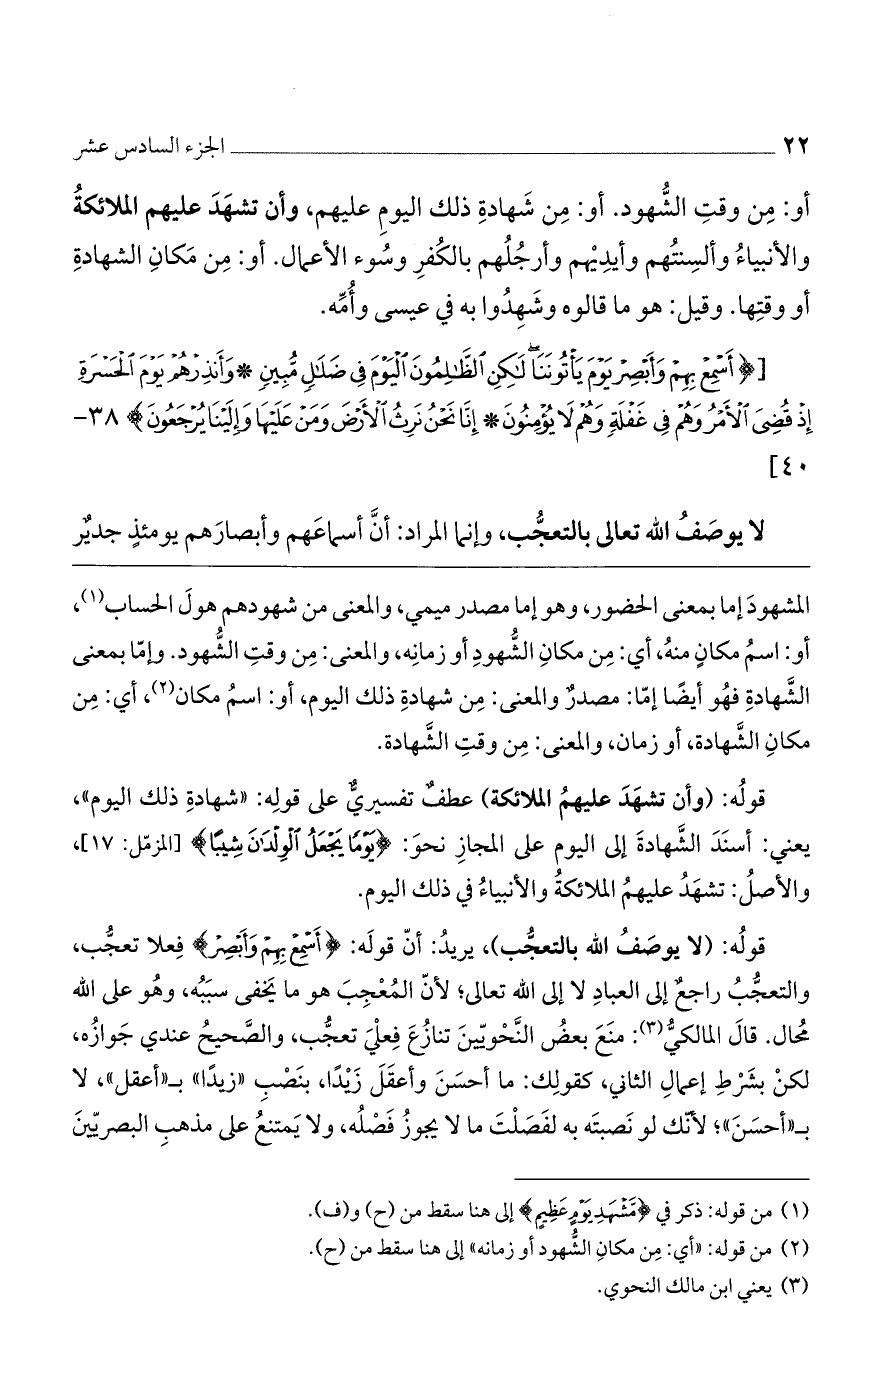 ٢٢ ــــــــــــــــــــــــــــــــــــــــ الجزء السادس عشر
أو: مِن وقتِ الشُّهود. أو: مِن شَهادةِ ذلك اليومِ عليهم، وأن تشهَدَ عليهم الملائكةُ
والأنبياءُ وألسِنتُهم وأيدِيْهم وأرجُلُهم بالكُفرِ وسُوء الأعمال. أو: مِن مَكانِ الشهادةِ
أو وقتِها. وقيل: هو ما قالوه وشَهِدُوا به في عيسى وأُمِّه.
[﴿أَسْمِعْ بِهِمْ وَأَبْصِرْ يَوْمَ يَأْتُونَنَا ۖ لَٰكِنِ ٱلظَّٰلِمُونَ ٱلْيَوْمَ فِى ضَلَٰلٍ مُّبِينٍ * وَأَنذِرْهُمْ يَوْمَ ٱلْحَسْرَةِ
إِذْ قُضِىَ ٱلْأَمْرُ وَهُمْ فِى غَفْلَةٍ وَهُمْ لَا يُؤْمِنُونَ * إِنَّا نَحْنُ نَرِثُ ٱلْأَرْضَ وَمَنْ عَلَيْهَا وَإِلَيْنَا يُرْجَعُونَ﴾ ٣٨-
٤٠]
لا يوصَفُ الله تعالى بالتعجُّب، وإنما المراد: أنَّ أسماعَهم وأبصارَهم يومئذٍ جديرٌ
المشهودَ إما بمعنى الحضور، وهو إما مصدر ميمي، والمعنى من شهودهم هولَ الحساب(١)،
أو: اسمُ مكانٍ منهُ، أي: مِن مكانِ الشُّهودِ أو زمانِه، والمعنى: مِن وقتِ الشُّهود. وإمّا بمعنى
الشَّهادةِ فهُو أيضًا إمّا: مصدرٌ والمعنى: مِن شهادةِ ذلك اليوم، أو: اسمُ مكان(٢)، أي: مِن
مكانِ الشَّهادة، أو زمان، والمعنى: مِن وقتِ الشَّهادة.
قولُه: (وأن تشهَدَ عليهمُ الملائكة) عطفٌ تفسيريٌّ على قولِه: «شهادةِ ذلك اليوم»،
يعني: أسنَدَ الشَّهادةَ إلى اليوم على المجازِ نحوَ: ﴿يَوْمًا يَجْعَلُ ٱلْوِلْدَٰنَ شِيبًا﴾ [المزمّل: ١٧]،
والأصلُ: تشهَدُ عليهمُ الملائكةُ والأنبياءُ في ذلك اليوم.
قولُه: (لا يوصَفُ الله بالتعجُّب)، يريدُ: أنّ قولَه: ﴿أَسْمِعْ بِهِمْ وَأَبْصِرْ﴾ فِعلا تعجُّب،
والتعجُّبُ راجعٌ إلى العبادِ لا إلى الله تعالى؛ لأنّ المُعْجِبَ هو ما يَخفى سبَبُه، وهُو على الله
مُحال. قالَ المالكيُّ(٣): منَعَ بعضُ النَّحويّينَ تنازُعَ فِعلَيْ تعجُّب، والصَّحيحُ عندي جَوازُه،
لكنْ بشَرْطِ إعمالِ الثاني، كقولِك: ما أحسَنَ وأعقَلَ زَيْدًا، بنَصْبِ «زيدًا» بـ«أعقل»، لا
بـ«أحسَنَ»؛ لأنّك لو نَصبتَه به لفَصَلْتَ ما لا يجوزُ فَصْلُه، ولا يَمتنعُ على مذهبِ البصريّينَ
(١) من قوله: ذكر في ﴿مَّشْهَدِ يَوْمٍ عَظِيمٍ﴾ إلى هنا سقط من (ح) و(ف).
(٢) من قوله: «أي: مِن مكانِ الشُّهود أو زمانه» إلى هنا سقط من (ح).
(٣) يعني ابن مالك النحوي.